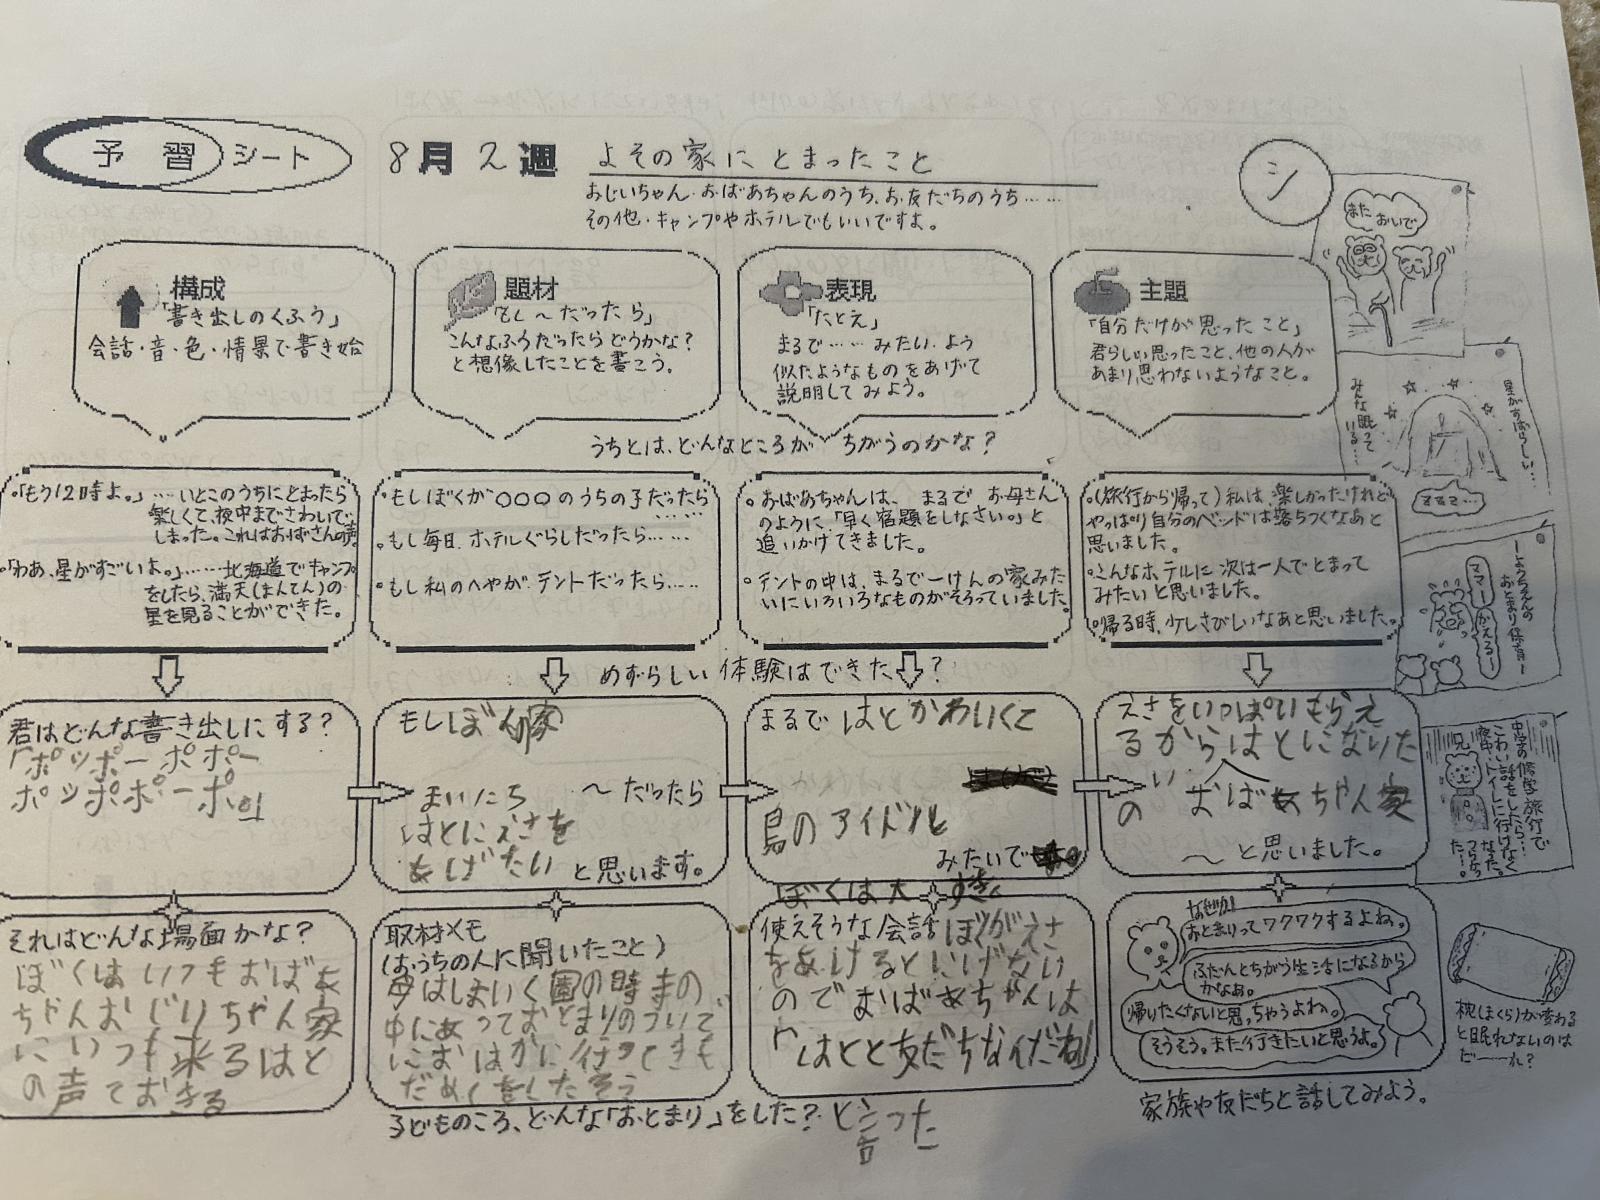 予習シート
8月2週
よその家にとまったこと
シ
おじいちゃん・おばあちゃんのうち、お友だちのうち……
その他・キャンプやホテルでもいいですよ。
構成
「書き出しのくふう」
会話・音・色・情景で書き始
題材
「もし〜だったら」
こんなふうだったらどうかな?
と想像したことを書こう。
表現
「たとえ」
まるで……みたい・よう
似たようなものをあげて
説明してみよう。
主題
「自分だけが思ったこと」
君らしい思ったこと、他の人が
あまり思わないようなこと。
うちとは、どんなところが ちがうのかな?
・「もう12時よ。」…いとこのうちにとまったら
楽しくて、夜中までさわいで
しまった。これはおばさんの声
・「わあ、星がすごいよ。」……北海道でキャンプ
をしたら、満天(まんてん)の
星を見ることができた。
・もしぼくが○○○のうちの子だったら
……
・もし毎日、ホテルぐらしだったら……
・もし私のへやが、テントだったら……
・おばあちゃんは、まるでお母さん
のように、「早く宿題をしなさい。」と
追いかけてきました。
・テントの中は、まるで一けんの家みた
いにいろいろなものがそろっていました。
・(旅行から帰って)私は、楽しかったけれど
やっぱり自分のベッドは落ちつくなあと
思いました。
・こんなホテルに次は一人でとまって
みたいと思いました。
・帰る時、少しさびしいなあと思いました。
めずらしい体験はできた?
君はどんな書き出しにする?
「ポッポー ポポー
ポッポポーポ
もしぼくん家
まいにち
〜だったら
はとにえさを
あげたい
と思います。
まるではとかわいくて
鳥のアイドル
みたいで
ぼくは大すき
えさをいっぱいもらえ
るからはとになりた
い
の おばあちゃん家
〜と思いました。
それはどんな場面かな?
ぼくはいつもおばあ
ちゃんおじいちゃん家
にいつも来るはと
の声でおきる
取材メモ
(おうちの人に聞いたこと)
はしまいく園の時まの
中にあっておとまりのついで
におはかに行ってきも
だめしをしたそう
子どものころ、どんな「おとまり」をした?
と言った
使えそうな会話
ぼくがえさ
をあげるとにげない
のでおばあちゃんは
「はとと友だちなんだね」
なぜか!
おとまりってワクワクするよね。
ふだんとちがう生活になるから
かなあ。
帰りたくないと思っちゃうよね。
そうそう。また行きたいと思うよ。
家族や友だちと話してみよう。
また おいで
星がすばらしい…
みんな眠って
いる…
ようちえんの
おとまり保育
ママー
かえるー
中学の修学旅行で
こわい話をしたら…
夜中、トイレに行けなく
なった。
枕(まくら)が変わる
と眠れないのは
だーーれ?